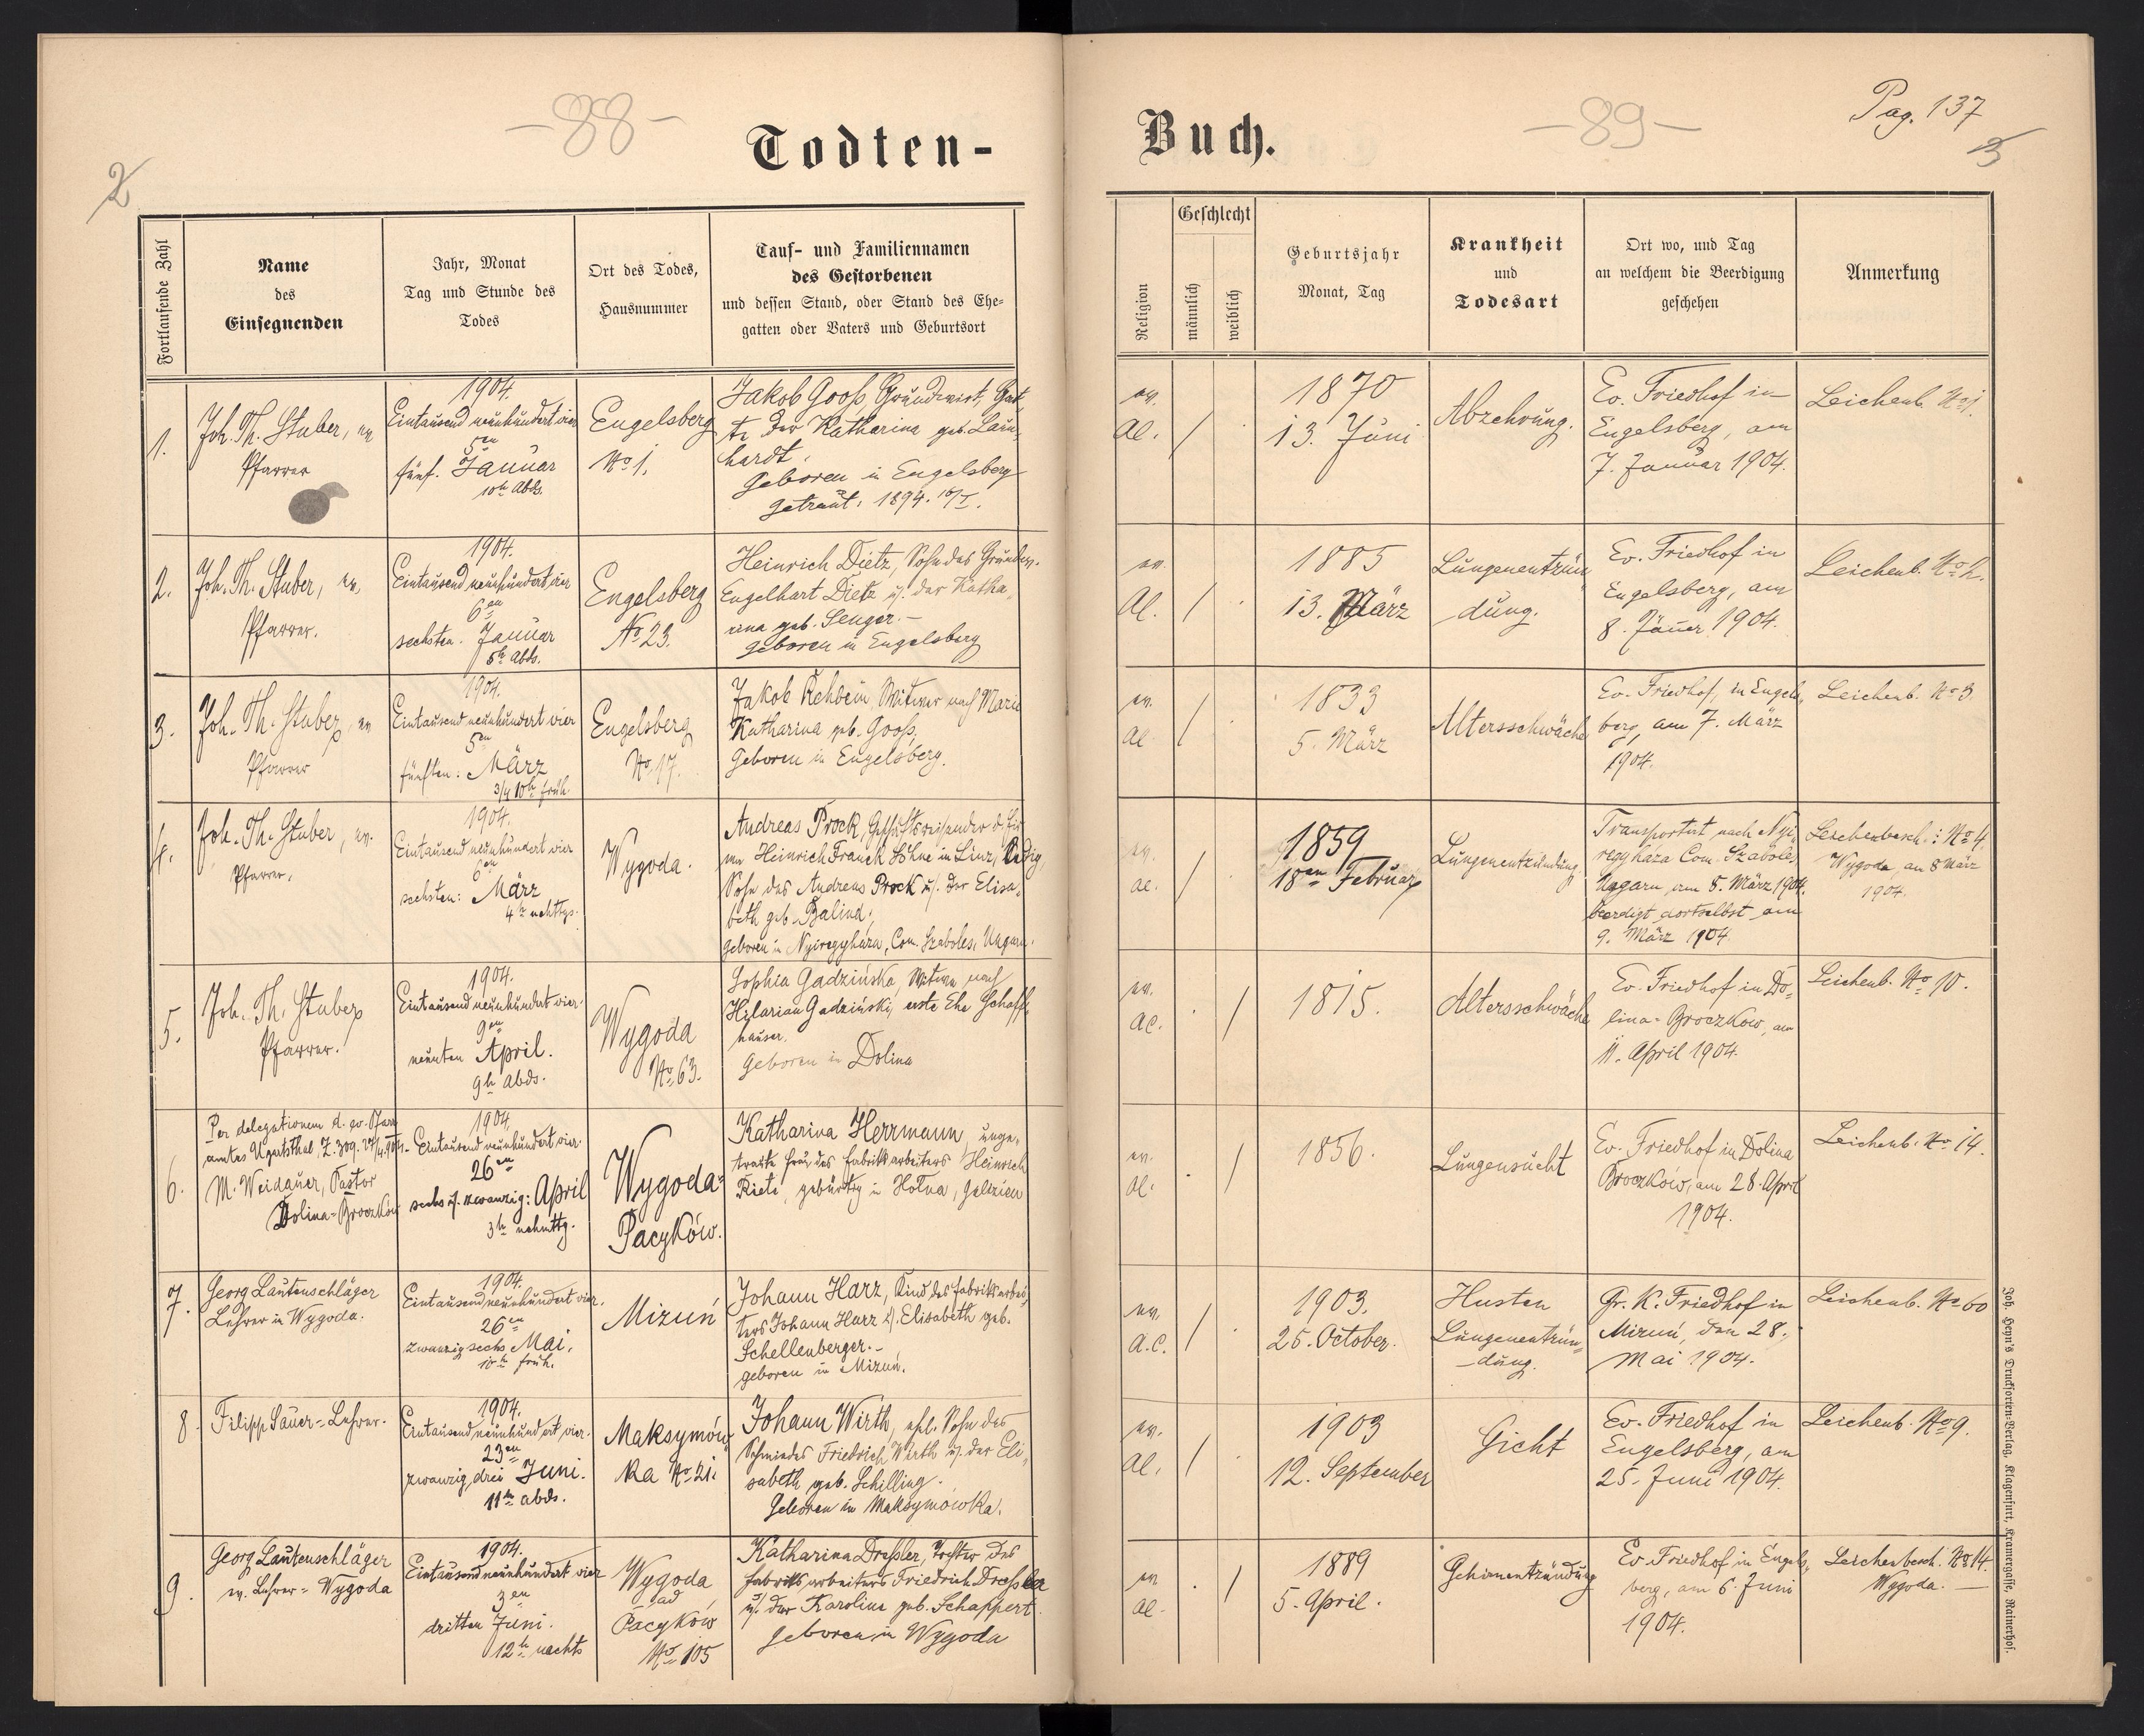 -88-
2
Todten-
Fortlaufende Zahl
Name
des
Einsegnenden
Jahr, Monat
Tag und Stunde des
Todes
Ort des Todes,
Hausnummer
Tauf- und Familiennamen
des Gestorbenen
und dessen Stand, oder Stand des Ehe-
gatten oder Vaters und Geburtsort
1.
Joh. Th. Stuber, ev
Pfarrer
1904.
Eintausend neunhundert vier
5en
fünf. Januar
10h Abds.
Engelsberg
No 1.
Jakob Gooß Grundwirt, Gat-
te der Katharina geb. Lein-
hardt.
Geboren in Engelsberg
getraut: 1894.
2.
Joh. Th. Stuber, ev.
Pfarrer.
1904.
Eintausend neunhundert vier
6en
sechsten. Januar
5h Abds.
Engelsberg
No 23.
Heinrich Dietz, Sohn des Grundw.
Engelhart Dietz u. der Katha-
rina geb. Senger.-
geboren in Engelsberg
3.
Joh. Th. Stuber, ev
Pfarrer
1904.
Eintausend neunhundert vier
5en
fünften: März
3/4 10h früh
Engelsberg
No 17.
Jakob Rehbein Witwer nach Marie
Katharina geb. Gooß.
Geboren in Engelsberg.
4.
Joh. Th. Stuber, ev.
Pfarrer.
1904.
Eintausend neunhundert vier
6en
sechsten: März
4h nchttgs.
Wygoda.
Andreas Prock, Geschäftsreisender d. Fir-
ma Heinrich Franck Söhne in Linz, ledig,
Sohn des Andreas Prock u. der Elisa-
beth geb. Balind;
geboren in Nyiregyháza, Com. Szaboles, Ungarn.
5.
Joh. Th. Stuber
Pfarrer.
1904.
Eintausend neunhundert vier.
9en
neunten April.
9h abds.
Wygoda
No 63.
Sophia Gadzińska, Witwe nach
Hilarian Gadziński, erste Ehe Schaff-
hauser.
Geboren in Dolina
6.
Per delegationem d. ev. Pfarr-
amtes Ugartsthal, Z. 309. 27/4.904.
M. Weidauer, Pastor
Dolina-Broczków
1904.
Eintausend neunhundert vier.
26en
sechs u. zwanzig: April
3h nchmttg.
Wygoda-
Pacyków.
Katharina Herrmann, unge-
traute Frau des Fabriksarbeiters Heinrich
Rieti, gebürtig in Hołna, Galizien
7.
Georg Lautenschläger
Lehrer in Wygoda.
1904.
Eintausend neunhundert vier.
26en
zwanzig sechs Mai.
10h früh.
Mizuń
Johann Harz, Kind des Fabriksarbei-
ters Johann Harz u. Elisabeth geb.
Schellenberger.-
geboren in Mizuń.
8.
Filipp Sauer = Lehrer.
1904.
Eintausend neunhundert vier.
23en
zwanzig drei Juni.
11h abds.
Maksymów-
ka No 21.
Johann Wirth, ehl. Sohn des
Schmiedes Friedrich Wirth u. der Eli-
sabeth geb. Schilling.
Geboren in Maksymówka.
9.
Georg Lautenschläger
ev. Lehrer = Wygoda
1904.
Eintausend neunhundert vier
3en
dritten Juni.
12h nachts
Wygoda
ad
Pacyków
No 105
Katharina Dreßler, Tochter des
Fabriksarbeiters Friedrich Dreßler
u. der Karolina geb. Schappert.
Geboren in Wygoda
Buch.
-89-
Pag. 137
3
Religion
Geschlecht
männlich
weiblich
Geburtsjahr
Monat, Tag
Krankheit
und
Todesart
Ort wo, und Tag
an welchem die Beerdigung
geschehen
Anmerkung
ev.
AC.
/
1870
13. Juni
Abzehrung.
Ev. Friedhof in
Engelsberg, am
7. Januar 1904.
Leichenb. No 1.
ev.
AC.
/
1885
13. März
Lungenentzün-
dung.
Ev. Friedhof in
Engelsberg, am
8. Jäner 1904.
Leichenb. No 2.
ev.
AC
/
1833
5. März
Altersschwäche
Ev. Friedhof, in Engels-
berg, am 7. März
1904.
Leichenb. No 3
ev.
AC.
/
1859
18en Februar
Lungenentzündung.
Transportirt nach Nyi-
regyháza Com. Szaboles
Ungarn, am 8. März 1904.
beerdigt dortselbst am
9. März 1904
Leichenbesch.: No 4
Wygoda, am 8 März
1904.
ev.
AC.
/
1815.
Altersschwäche
Ev. Friedhof in Do-
lina-Broczkow, am
11. April 1904.
Leichenb. No 10.
ev.
AC.
/
1856.
Lungensucht
Ev. Friedhof in Dolina
Broczków, am 28. April
1904.
Leichenb. No 14.
ev.
A.C.
/
1903.
25. October.
Husten
Lungenentzün-
dung.
Gr. K. Friedhof in
Mizuń, den 28.
Mai 1904.
Leichenb. No 60
ev.
AC.
/
1903
12. September
Gicht
Ev. Friedhof in
Engelsberg, am
25. Juni 1904.
Leichenb. No 9.
ev
AC.
/
1889
5. April.
Gehirnentzündung
Ev. Friedhof in Engels-
berg, am 6. Juni
1904.
Leichenbesch. No 14.
Wygoda. —
Joh. Heyn's Drucksorten-Verlag, Klagenfurt, Kramergasse, Rainerhof.